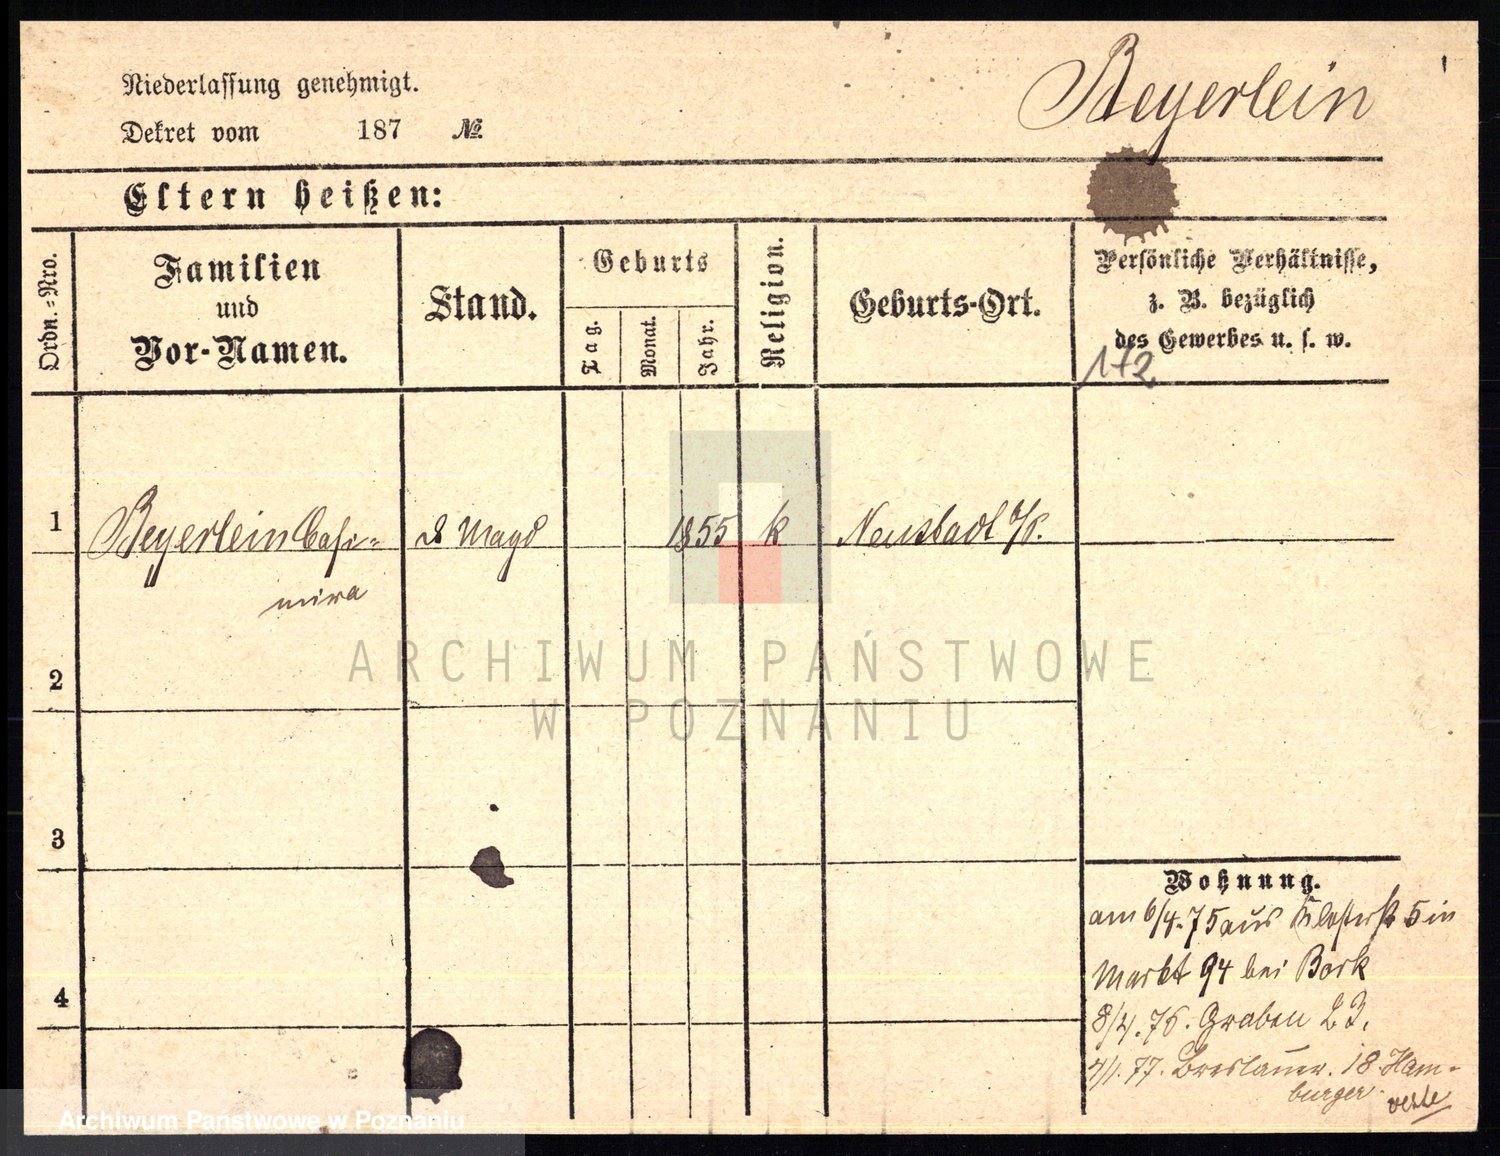 Beyerlein
Niederlassung genehmigt.
Dekret vom 187 №
Eltern heißen:
Ordn.-Nro.
Familien
und
Vor-Namen.
Stand.
Geburts
Tag.
Monat.
Jahr.
Religion.
Geburts-Ort.
Persönliche Verhältnisse,
z. B. bezüglich
des Gewerbes u. s. w.
172
1 Beyerlein Casi- Magd 1855 k Neustadt
mira
2
3
4
Wohnung.
am 6/4.75 aus Klosterst 5 in
Markt 94 bei Bork
8/4.76. Graben 23.
4/1.77. Breslauer. 18 Ham-
burger
ARCHIWUM PAŃSTWOWE
W POZNANIU
Archiwum Państwowe w Poznaniu